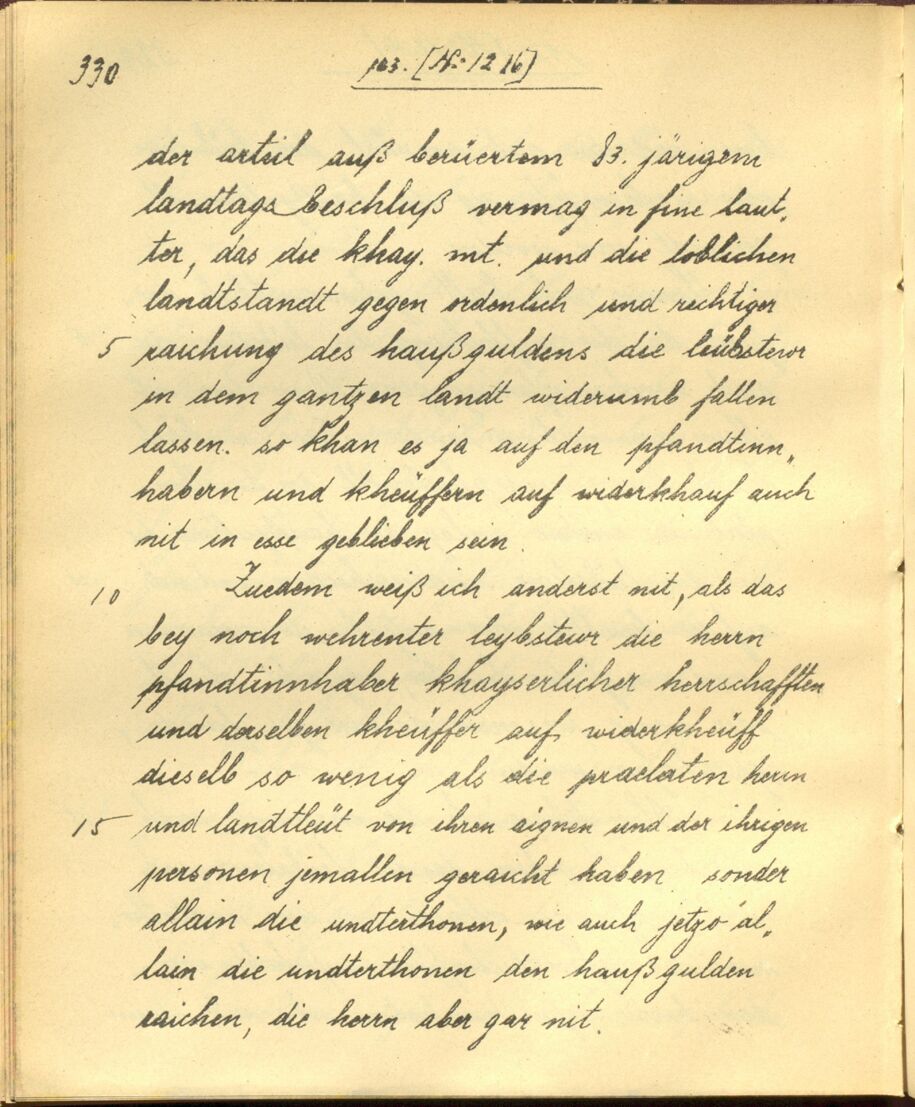 330
163. [N: 12 16]
der artiil auß berüertem 83. järigem
landtags Beschluß vermag in fine laut„
ter, das die khay. mt. und die loblichen
landtstandt gegen ordenlich und richtiger
5 raichung des haußguldens die leübstewr
in dem gantzen landt widerumb fallen
lassen. so khan es ja auf den pfandtinn„
habern und kheüffern auf widerkhauf auch
nit in esse geblieben sein.
10 Zuedem weiß ich anderst nit, als das
bey noch wehrenter leybstewr die herrn
pfandtinnhaber khayserlicher herrschafften
und derselben kheüffer auf widerkheüff
dieselb so wenig als die praelaten herrn
15 und landtleüt von ihren aignen und der ihrigen
personen jemallen geraicht haben sonder
allain die undterthonen, wie auch jetzo al„
lain die undterthonen den haußgulden
raichen, die herrn aber gar nit.